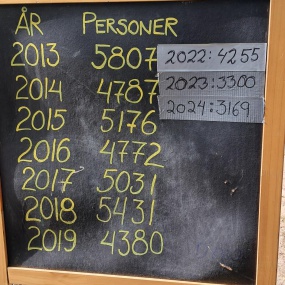 ÅR PERSONER
2013 5807
2014 4787
2015 5176
2016 4772
2017 5031
2018 5431
2019 4380
2022:4255
2023:3300
2024:3169